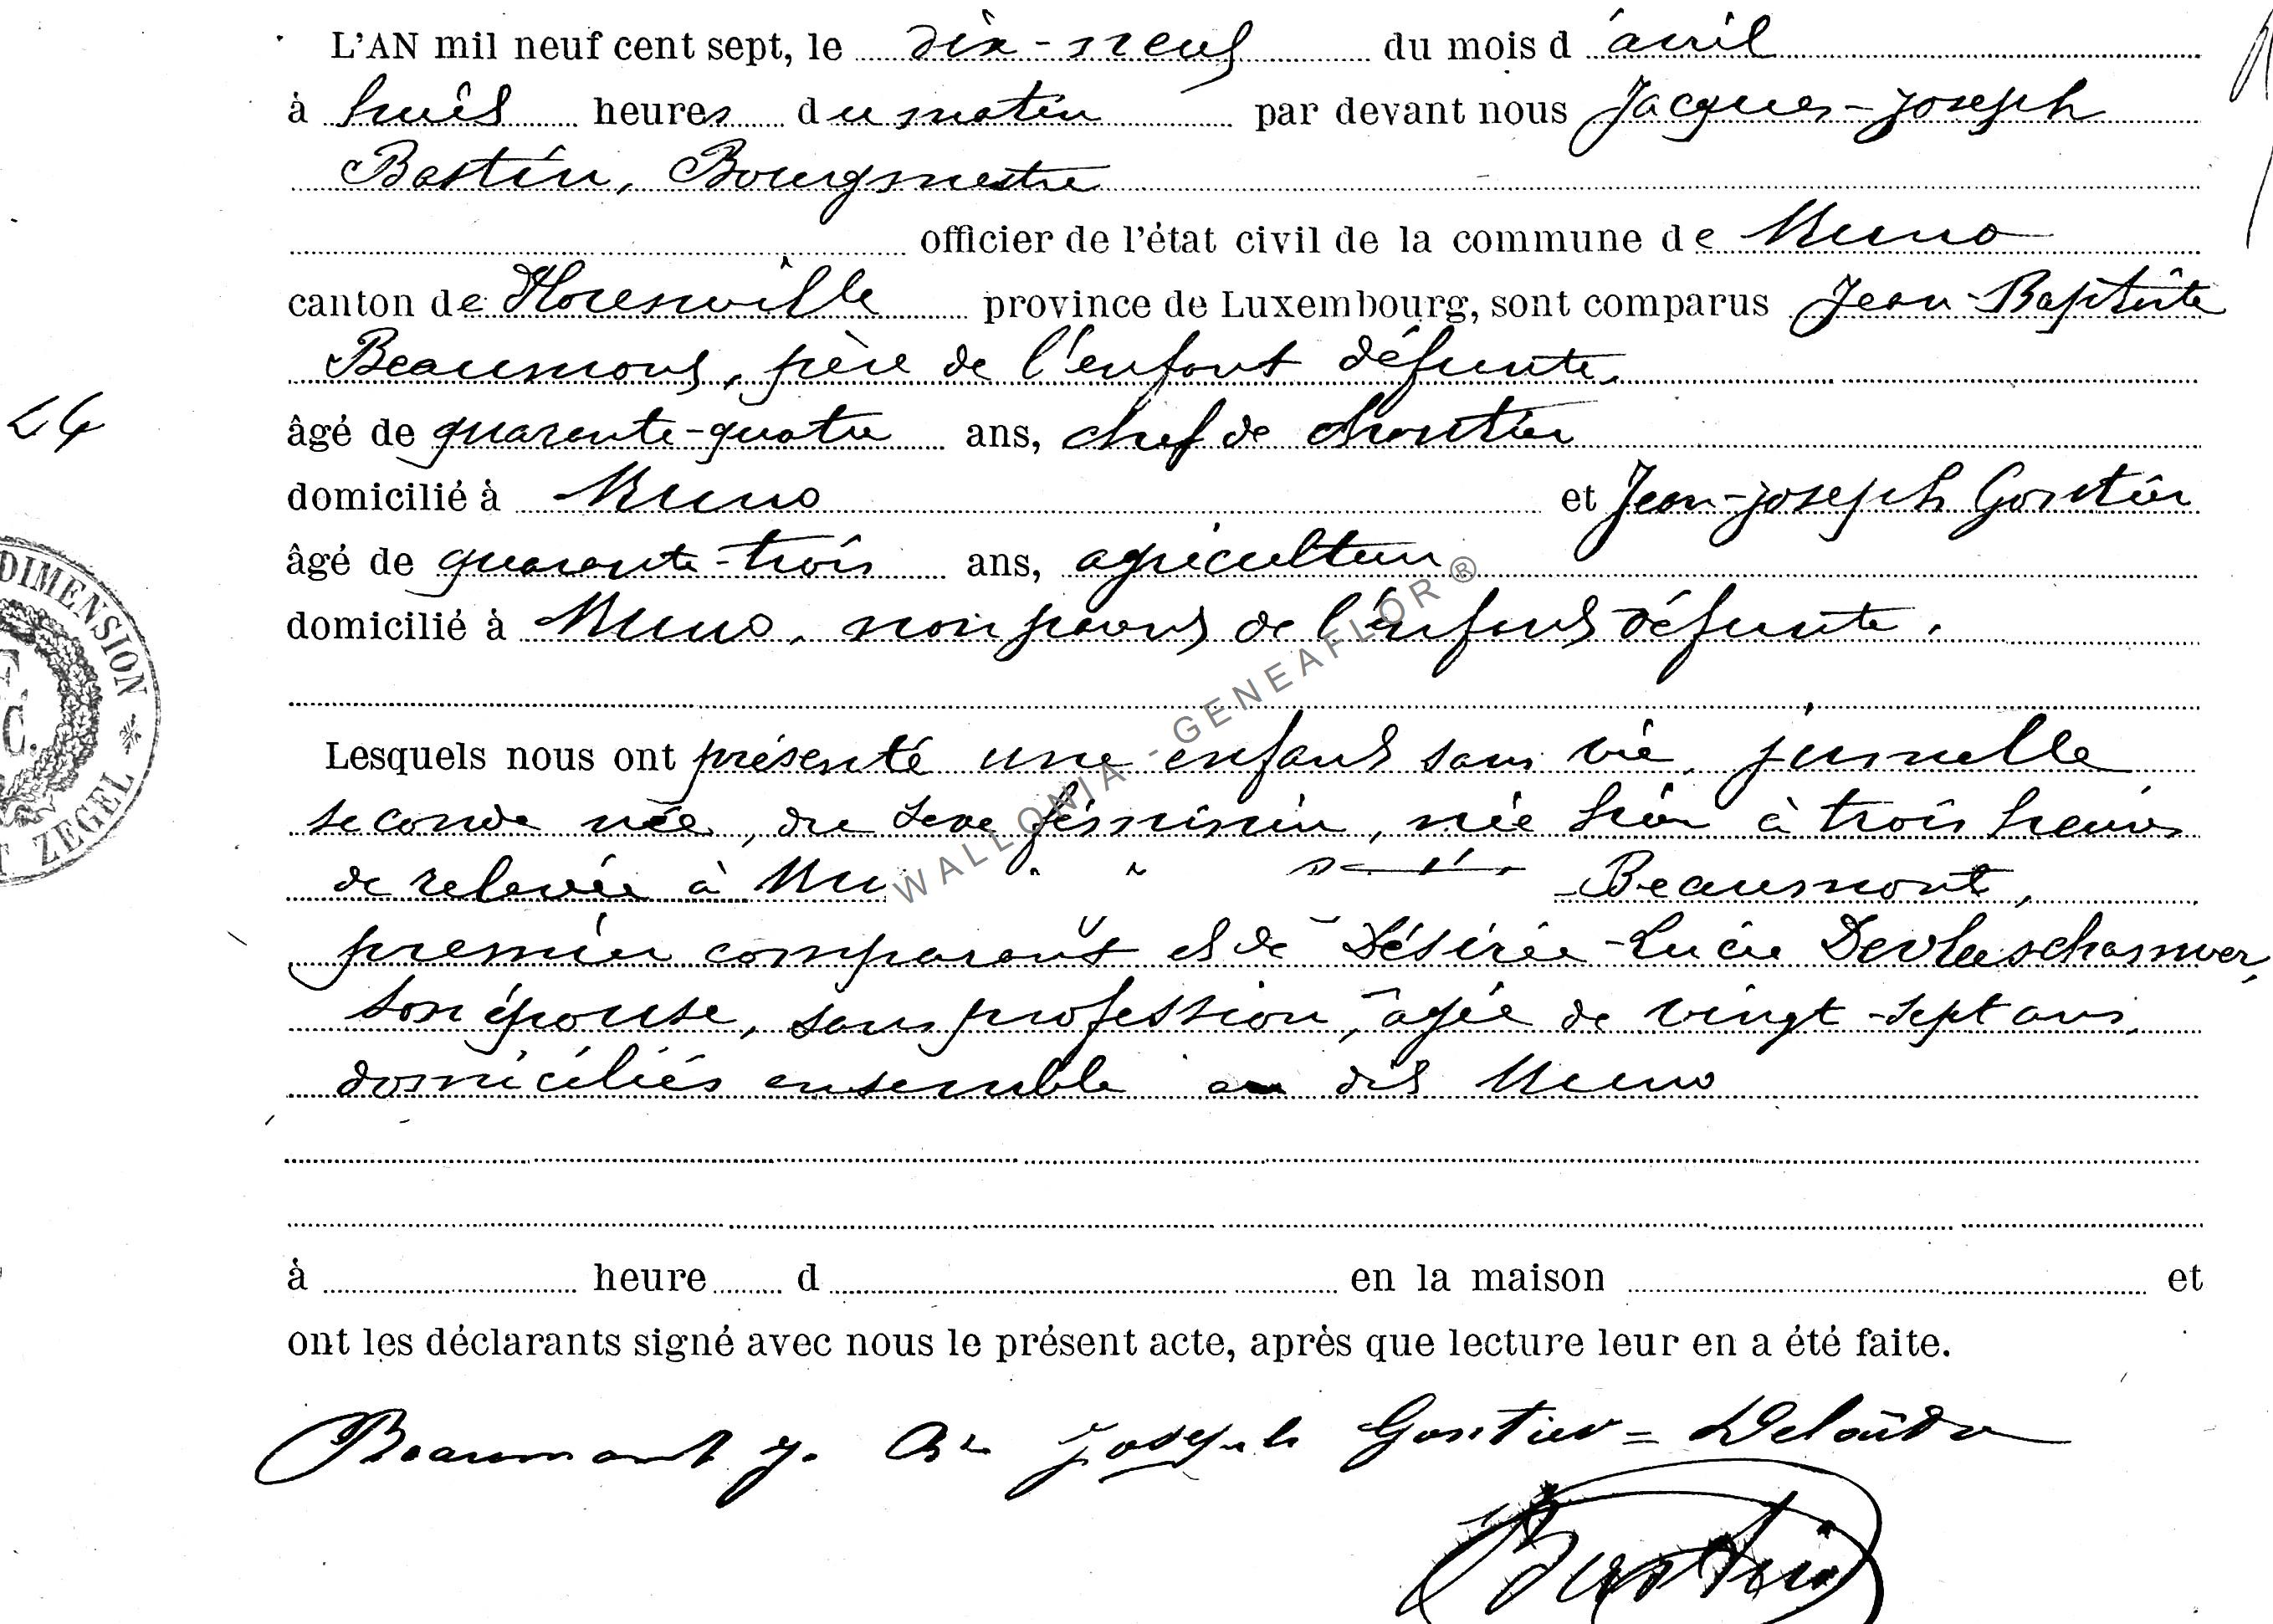 L'AN mil neuf cent sept, le dix-neuf du mois d'avril
à huit heures du matin par devant nous Jacques-Joseph
Bastin, Bourgmestre
officier de l'état civil de la commune de Muno
canton de Florenville province de Luxembourg, sont comparus Jean-Baptiste
Beaumont, père de l'enfant défunte,
âgé de quarante-quatre ans, chef de chantier
24
domicilié à Muno et Jean-Joseph Gontier
âgé de quarante-trois ans, agriculteur
domicilié à Muno, non parent de l'enfant défunte.
DIMENSION
ZEGEL
Lesquels nous ont présenté une enfant sans vie, jumelle
seconde née, du sexe féminin, née hier à trois heures
de relevée à Beaumont,
WALLONIA - GENEAFLOR ®
premier comparant et de Désirée-Lucie
son épouse, sans profession, âgée de vingt-sept ans,
domiciliés ensemble au dit Muno
à heure d en la maison et
ont les déclarants signé avec nous le présent acte, après que lecture leur en a été faite.
Beaumont J. Bte Joseph Gontier =
Bastin